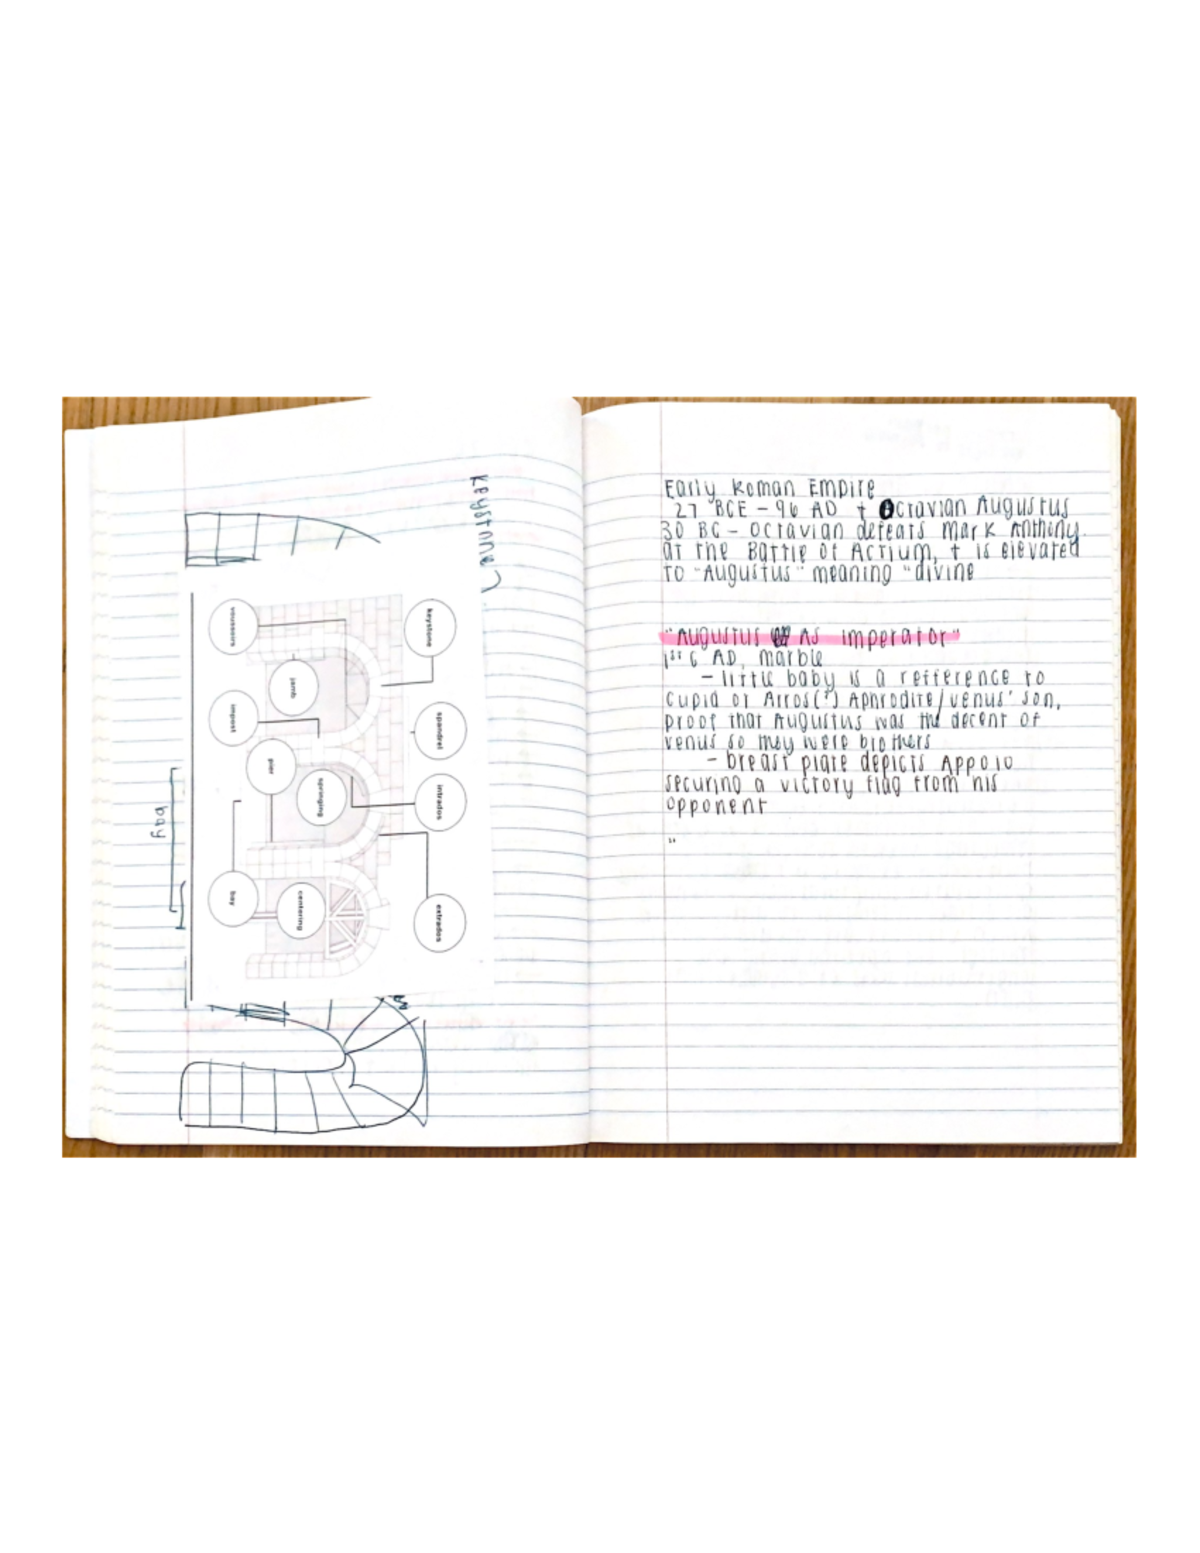 Keystone
voussoirs
keystone
jamb
impost
spandrel
pier
springing
intrados
bay
centering
extrados
bay
Early Roman Empire
27 BCE - 96 AD + Octavian Augustus
30 BC - Octavian defeats Mark Anthony
at the Battle of Actium, + is elevated
to "Augustus" meaning "divine
"Augustus As imperator"
1st C AD, marble
- little baby is a refference to
Cupid or Arros(?) Aphrodite/Venus' son,
proof that Augustus was the decent of
venus so they were brothers
- breast plate depicts Appolo
securing a victory flag from his
opponent
"